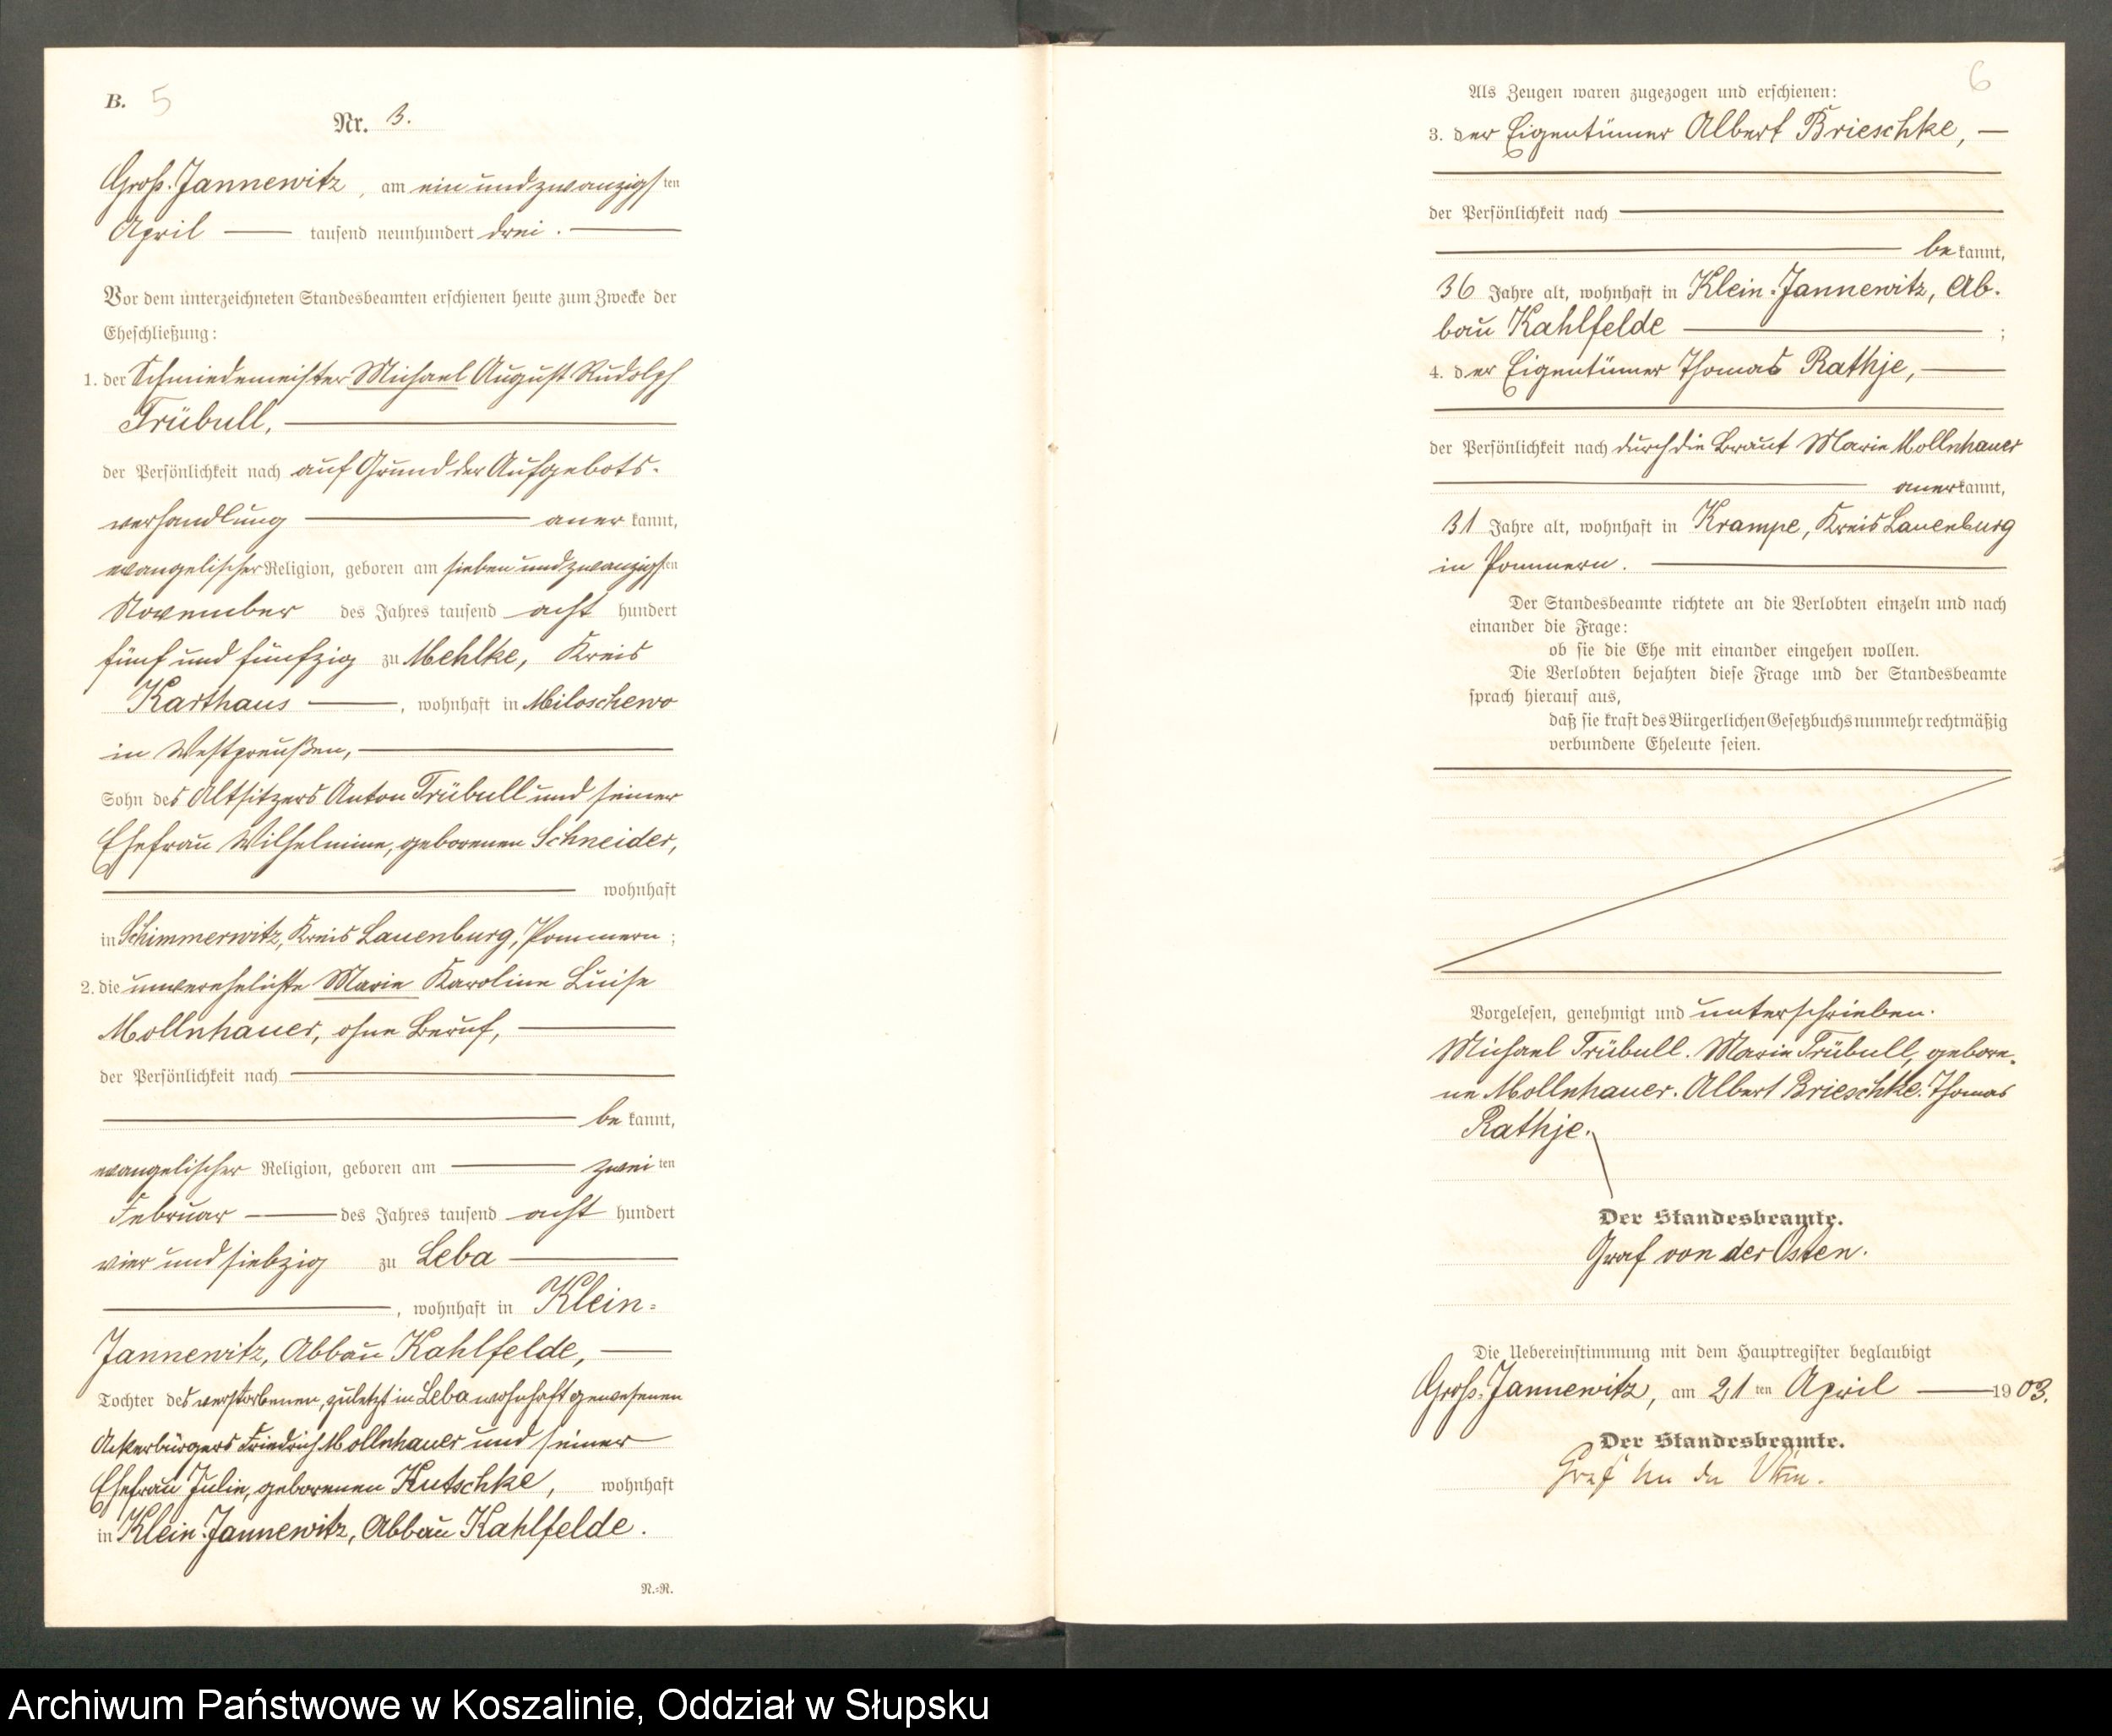 B. 5
Nr. 3.
Groß-Jannewitz, am ein und zwanzigsten
April tausend neunhundert drei.
Vor dem unterzeichneten Standesbeamten erschienen heute zum Zwecke der
Eheschließung:
1. der Schmiedemeister Michael August Rudolph
Trübull,
der Persönlichkeit nach auf Grund der Aufgebots-
verhandlung anerkannt,
evangelischer Religion, geboren am sieben und zwanzigsten
November des Jahres tausend acht hundert
fünf und fünfzig zu Mehlke, Kreis
Karthaus, wohnhaft in Miloschewo
in Westpreußen,
Sohn des Altsitzers Anton Trübull und seiner
Ehefrau Wilhelmine, geborenen Schneider,
wohnhaft
in Schimmerwitz, Kreis Lauenburg, Pommern;
2. die unverehelichte Marie Karoline Luise
Mollnhauer, ohne Beruf,
der Persönlichkeit nach
bekannt,
evangelischer Religion, geboren am zweiten
Februar des Jahres tausend acht hundert
vier und siebzig zu Leba
, wohnhaft in Klein-
Jannewitz, Abbau Kahlfelde,
Tochter des verstorbenen, zuletzt in Leba wohnhaft gewesenen
Ackerbürgers Friedrich Mollnhauer und seiner
Ehefrau Julie, geborenen Kutschke, wohnhaft
in Klein-Jannewitz, Abbau Kahlfelde.
N.-R.
6
Als Zeugen waren zugezogen und erschienen:
3. der Eigentümer Albert Brieschke,
der Persönlichkeit nach
bekannt,
36 Jahre alt, wohnhaft in Klein-Jannewitz, Ab-
bau Kahlfelde;
4. der Eigentümer Thomas Rathje,
der Persönlichkeit nach durch die Braut Marie Mollnhauer
anerkannt,
31 Jahre alt, wohnhaft in Krampe, Kreis Lauenburg
in Pommern.
Der Standesbeamte richtete an die Verlobten einzeln und nach
einander die Frage:
ob sie die Ehe mit einander eingehen wollen.
Die Verlobten bejahten diese Frage und der Standesbeamte
sprach hierauf aus,
daß sie kraft des Bürgerlichen Gesetzbuchs nunmehr rechtmäßig
verbundene Eheleute seien.
Vorgelesen, genehmigt und unterschrieben.
Michael Trübull. Marie Trübull, gebore-
ne Mollnhauer. Albert Brieschke. Thomas
Rathje.
Der Standesbeamte.
Graf von der Osten.
Die Uebereinstimmung mit dem Hauptregister beglaubigt
Groß-Jannewitz, am 21ten April 1903.
Der Standesbeamte.
Graf von der Osten.
Archiwum Państwowe w Koszalinie, Oddział w Słupsku